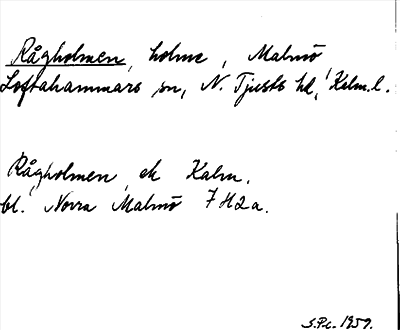 Rågholmen, holme, Malmö,
Loftahammars sn, N. Tjusts hd, Kalm. l.
Rågholmen, ek Kalm.
bl. Norra Malmö 7 H 2 a.
S.Pe. 1959.